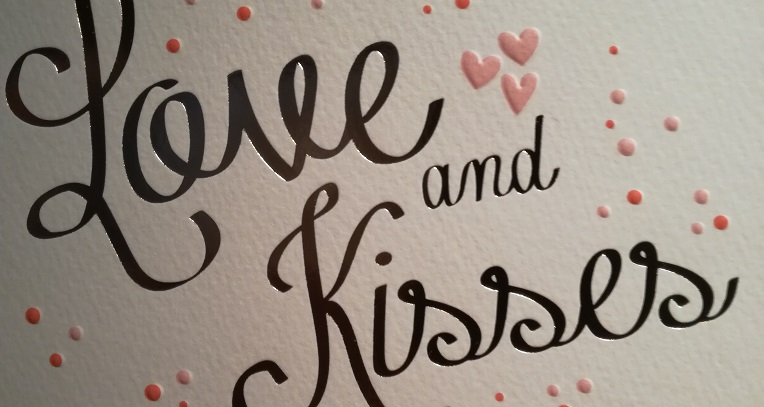 Love
and
Kisses